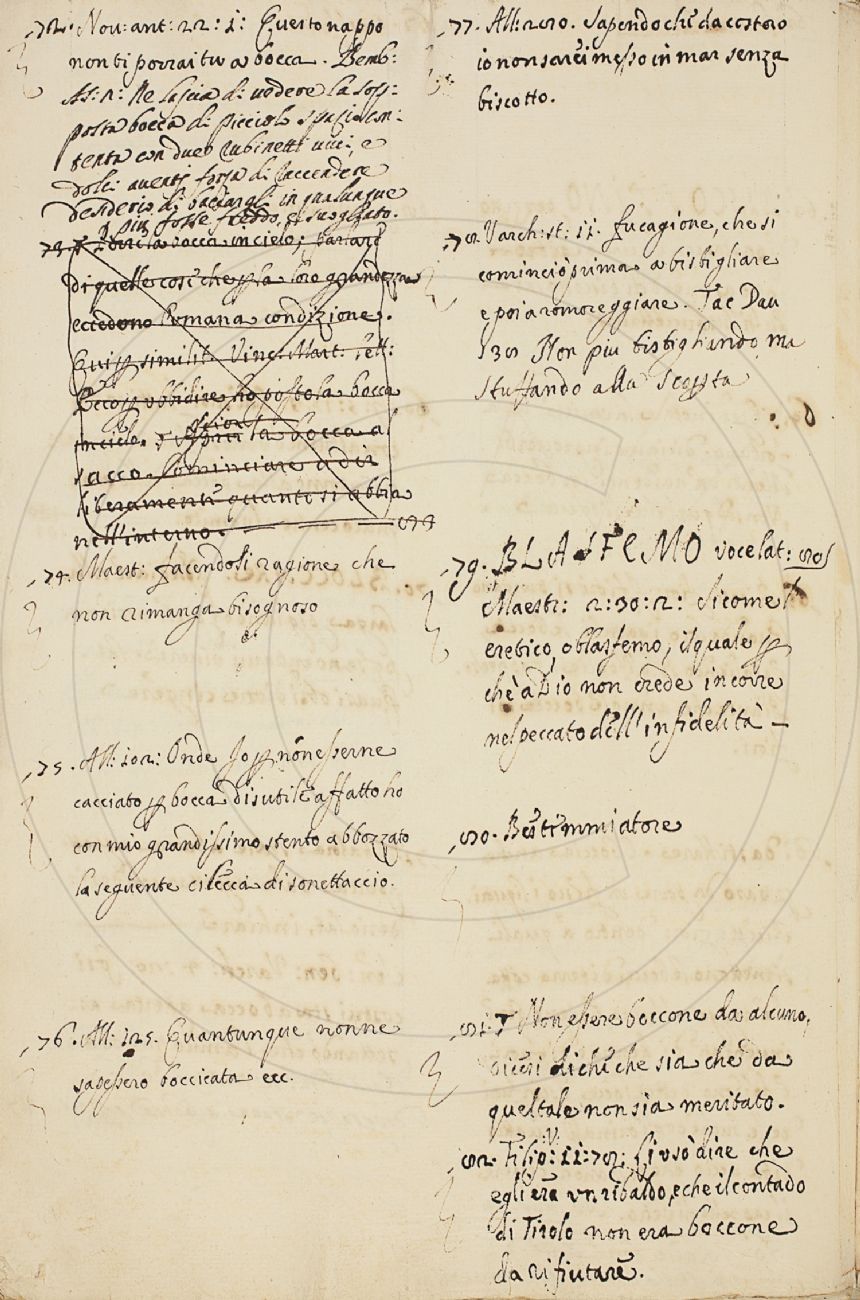 ,72. Nov: ant: 22: 1: Questo nappo
non ti porrai tu a bocca. Bemb:
As: 1: Ne lascia di vedere la sop:
posta bocca di picciolo spazio con:
tenta con due rubinetti vivi, e
dolci aventi forza di raccendere
desiderio di baciargli in qualunque
più fosse freddo, e svogliato.
73. la bocca in cielo; Parlare
di quelle cose che p la loro grandezza
eccedono l'umana condizione.
Quin similit: Vinc: Mart: lett:
Ecco p ubbidire ho posto la bocca
in cielo. Aprir la bocca al
sacco. Cominciare a dir
liberamente quanto si abbia
nell'interno.
,74. Maest: facendosi ragione che
non rimanga bisognoso
,75. All: 102: Onde Io p non esserne
cacciato p bocca disutile affatto ho
con mio grandissimo stento abbozzato
la seguente cilecca di sonettaccio.
,76. All: 125. Quantunque non ne
sapessero boccicata ecc.
,77. All: 280. Sapendo che da costoro
io non sarei messo in mar senza
biscotto.
,78. Varch: st: 11. fu cagione, che si
cominciò prima a bisbigliare
e poi a romoreggiare. Tac Dav
138 Non più bisbigliando, ma
stuffando alla scopta
,79. BLASFEMO voce lat:
Maestr: 2:30:2: Sicome l'
eretico, o blasfemo, il quale p
chè a Dio non crede incorre
nel peccato dell'infidelità —
,80. Bestemmiatore
,81. Non essere boccone da alcuno,
dicesi di che che sia che da
quel tale non sia meritato.
,82. Filip: Vi: 11:78: Si usò dire che
egli era un ribaldo, e che il contado
di Tirolo non era boccone
da rifiutare.